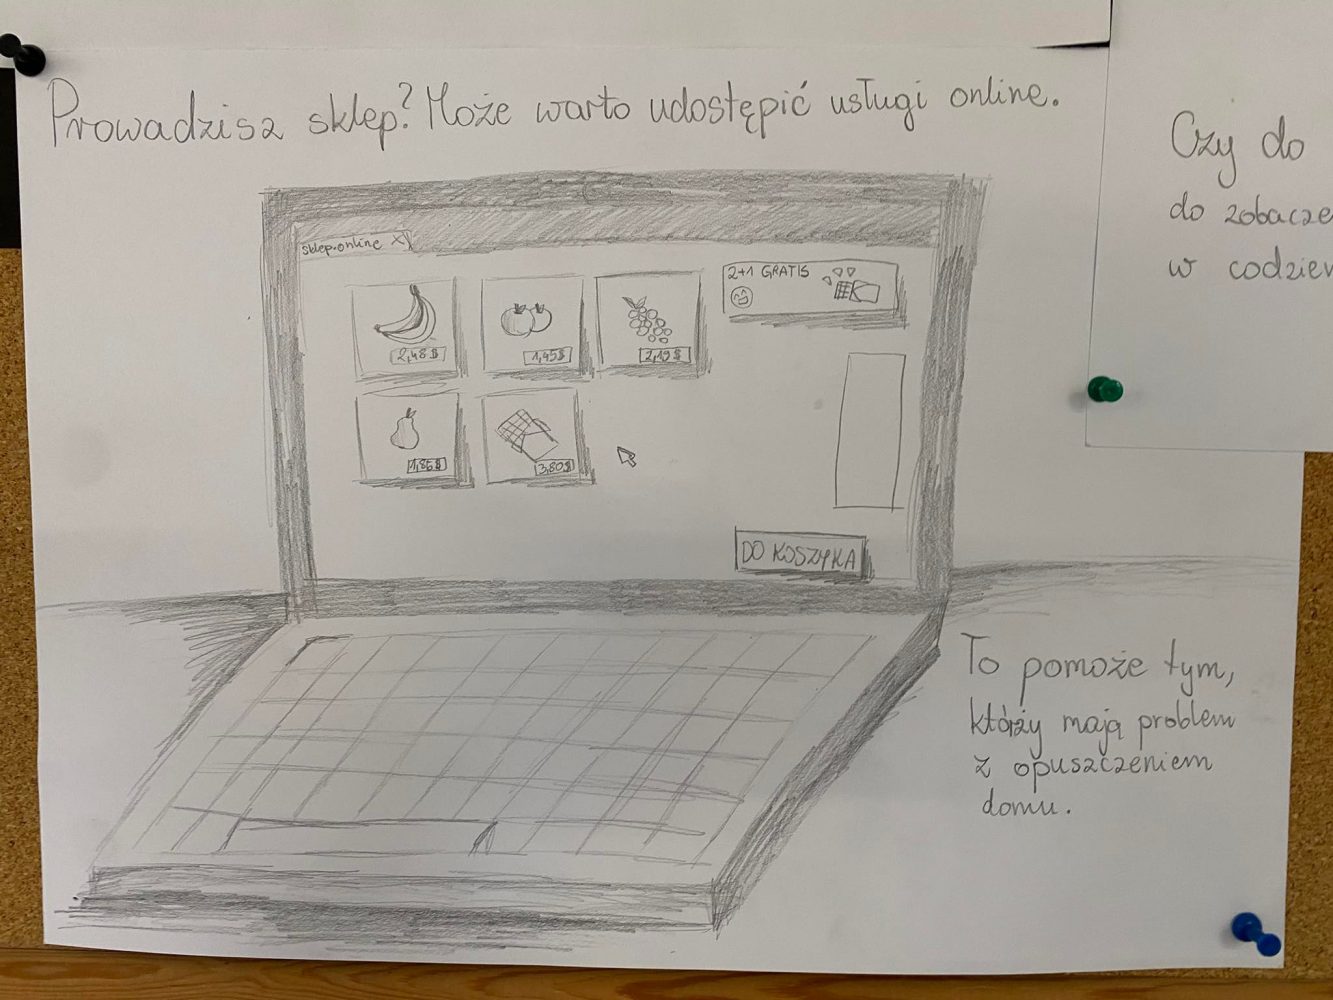 Prowadzisz sklep? Może warto udostępić usługi online.
sklep.online X
2,48$
1,45$
2,19$
2+1 GRATIS
1,86$
3,80$
DO KOSZYKA
To pomoże tym,
którzy mają problem
z opuszczeniem
domu.
Czy do
do zobacze
w codzien